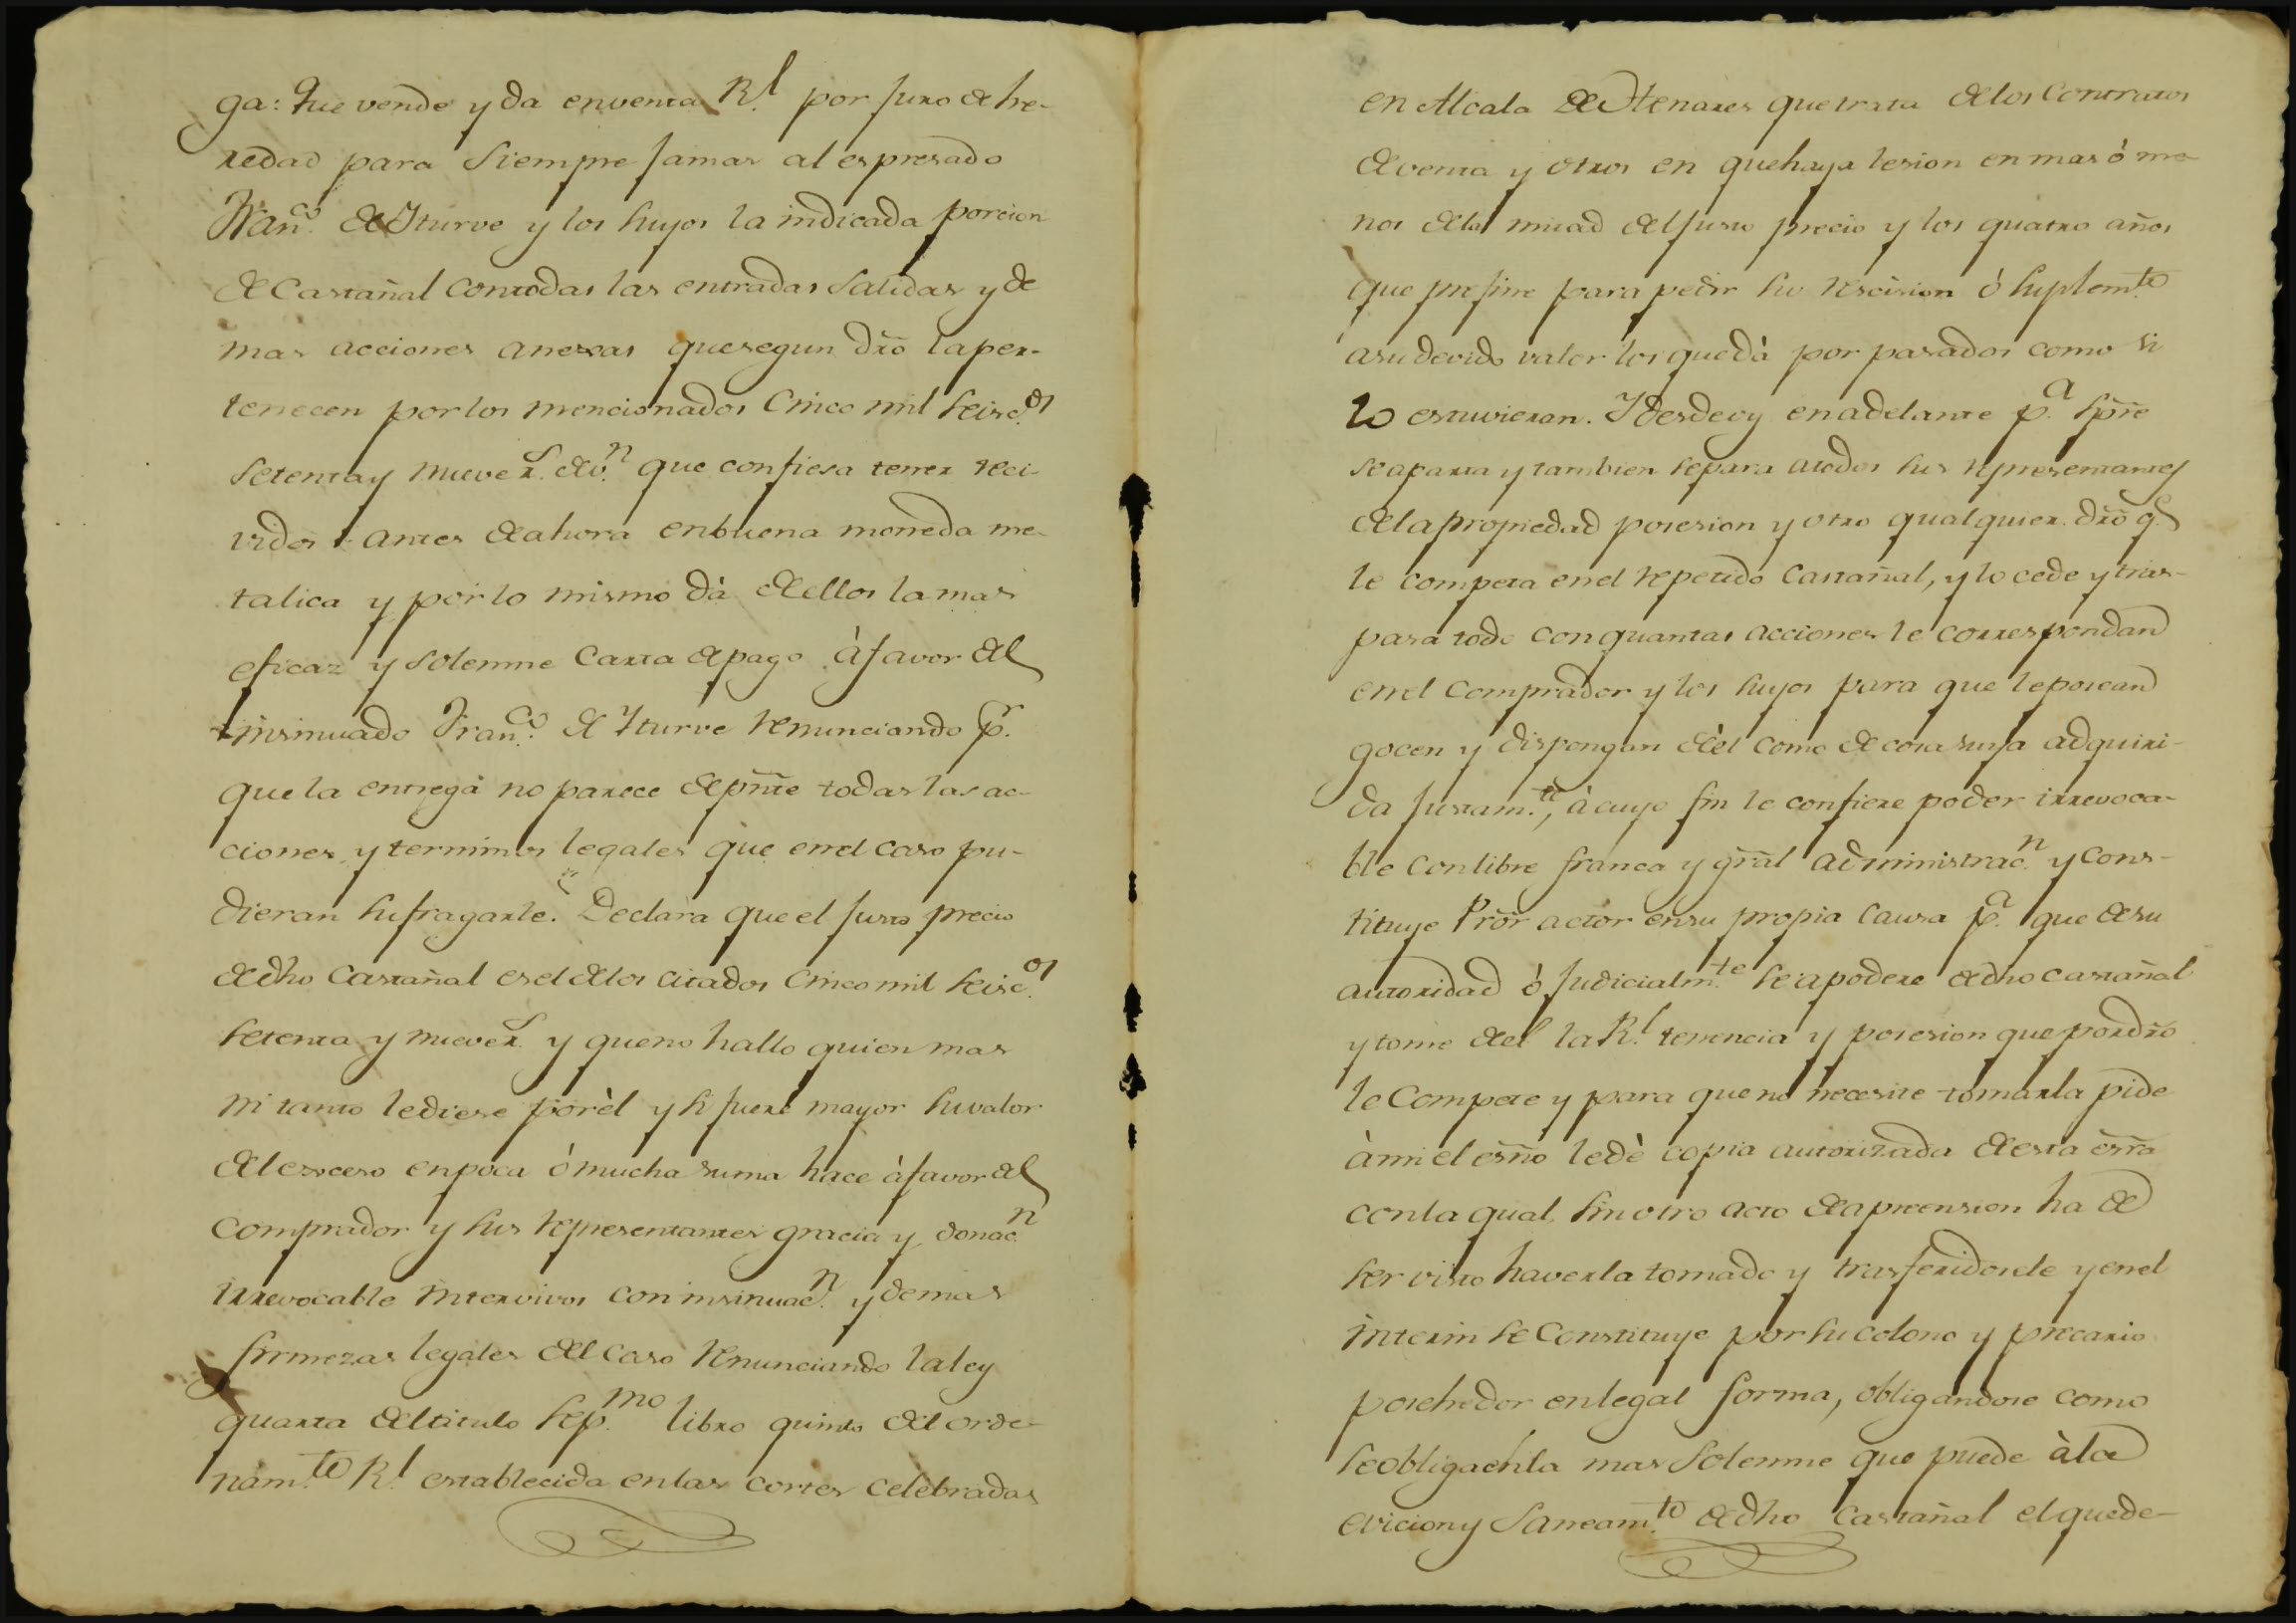 ga: Que vende y da en venta R.l por juro de he-
redad para siempre jamas al espresado
Fran.co de Yturve y los suyos la indicada porcion
de Castañal con todas las entradas salidas y de
mas acciones anexas que segun dro la per-
tenecen por los mencionados Cinco mil seisc.os
setenta y nueve r.s de v.n que confiesa tener reci-
vidos antes de ahora en buena moneda me-
talica y por lo mismo dà de ellos la mas
eficaz y solemne Carta de pago à favor del
insinuado Fran.co de Yturve renunciando p.r
que la entrega no parece de pnte todas las ac-
ciones y terminos legales que en el caso pu-
dieran sufragarle. Declara que el justo precio
de dho Castañal es el de los citados Cinco mil seisc.os
setenta y nueve r.s y que no hallo quien mas
ni tanto le diese por èl y si fuere mayor su valor
del exceso en poca ó mucha suma hace à favor del
Comprador y sus representantes gracia y donac.n
irrevocable intervivos con insinuac.n y demas
firmezas legales del caso renunciando la ley
quarta del titulo sep.mo libro quinto del orde-
nam.to R.l establecida en las cortes celebradas
en Alcala de Henares que trata de los Contratos
de venta y otros en que haya lesion en mas ó me-
nos de la mitad del justo precio y los quatro años
que prefine para pedir su rescision ó suplem.to
a su devido valor los que dà por pasados como si
lo estuvieran. Y desde oy en adelante p.a spre
se aparta y tambien separa a todos sus representantes
de la propiedad posesion y otro qualquier dro q.e
le competa en el repetido Castañal, y lo cede y tras-
pasa todo con quantas acciones le correspondan
en el Comprador y los suyos para que le posean
gocen y dispongan dèl como de cosa suya adquiri-
da justam.te, à cuyo fin le confiere poder irrevoca-
ble con libre franca y gral administrac.n y cons-
tituye Pror actor en su propia Causa p.a que de su
autoridad ó judicialm.te se apodere de dho castañal
y tome del la R.l tenencia y posesion que por dro
le Compete y para que no necesite tomarla pide
à mi el esño le dè copia autorizada de esta esrra
con la qual sin otro acto de aprension ha de
ser visto haverla tomado y trasferidosele y en el
interin se Constituye por su colono y precario
posehedor en legal forma, obligandose como
se obliga en la mas solemne que puede à la
eviccion y Saneam.to de dho Castañal el que de-